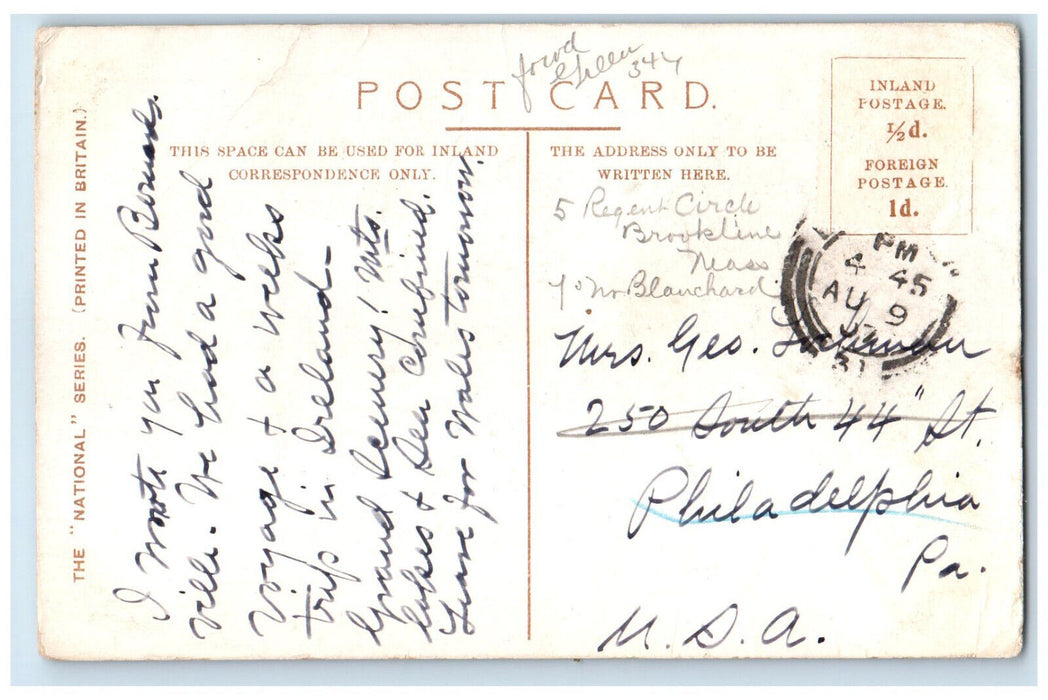 344
POST CARD.
THIS SPACE CAN BE USED FOR INLAND
CORRESPONDENCE ONLY.
THE ADDRESS ONLY TO BE
WRITTEN HERE.
INLAND
POSTAGE.
½d.
FOREIGN
POSTAGE.
1d.
THE "NATIONAL" SERIES. (PRINTED IN BRITAIN.)
I wrote you from Bernards
ville. We had a good
voyage & a weeks
trip in Ireland -
Grand Scenery! Mts.
lakes & Sea combined.
Leave for Wales tomorrow.
5 Regent Circle
Brookline
Mass
Blanchard
PM
4 45
AU 9
07
51
Mrs. Geo.
250 South 44" St.
Philadelphia
Pa.
U.S.A.